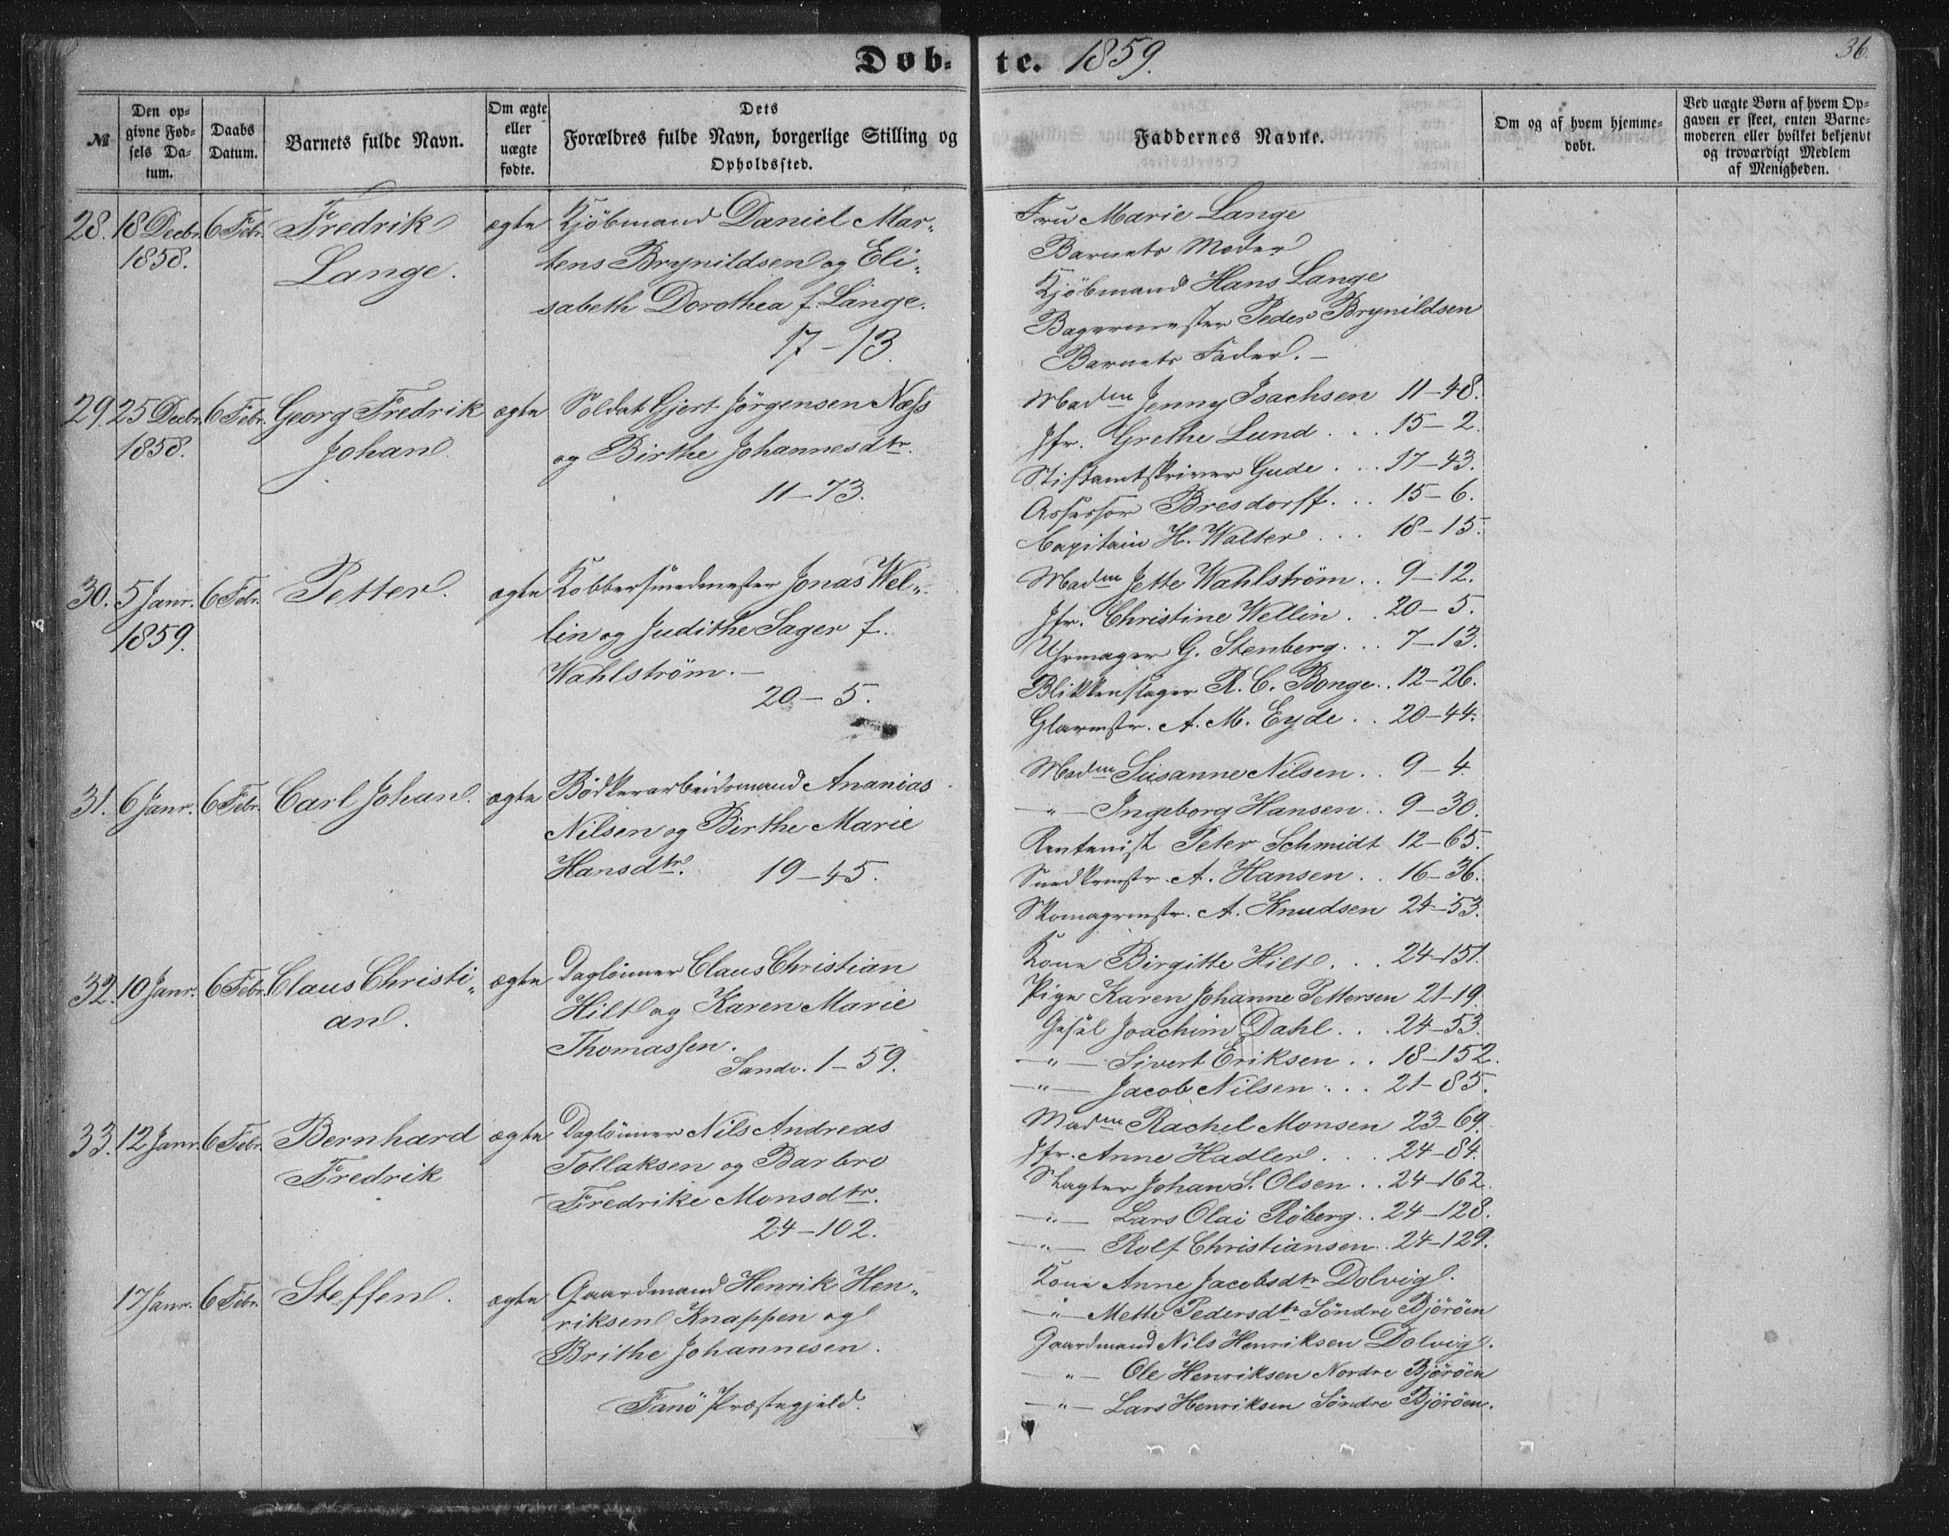 Døb- te. 1859. 36.
№
Den op-
givne Fød-
sels Da-
tum.
Daabs
Datum.
Barnets fulde Navn.
Om ægte
eller
uægte
fødte.
Dets
Forældres fulde Navn, borgerlige Stilling og
Opholdssted.
Faddernes Navne.
Om og af hvem hjemme-
døbt.
Ved uægte Børn af hvem Op-
gaven er skeet, enten Barne-
moderen eller hvilket bekjendt
og troværdigt Medlem
af Menigheden.
28. 18 Decbr. 6 Febr. Fredrik ægte Kjöbmand Daniel Mar-
1858. Lange. tens Brynildsen og Eli-
sabeth Dorothea f. Lange.
17-13.
Fru Marie Lange
Barnets Moder
Kjöbmand Hans Lange
Bagermester Peder Brynildsen
Barnets Fader. -
29. 25 Decbr. 6 Febr. Georg Fredrik ægte Soldat Gjert Jörgensen Næss
1858. Johan. og Birthe Johannesdtr.
11-73.
Madm Jenny Isachsen 11-48.
Jfr. Grethe Lund . . . 15-2.
Stiftamtskriver Gude . . . 17-43.
Assessor Bresdorff . . . 15-6.
Capitain H. Walter . . . 18-15.
30. 5 Janr. 6 Febr. Petter. ægte Kobbersmedmester Jonas Wel-
1859. lin og Judithe Sager f.
Wahlström. -
20-5.
Madm Jette Wahlström . . 9-12.
Jfr. Christine Wellin . . 20-5.
Uhrmager G. Stenberg . . . 7-13.
Blikkenslager R. C. Bonge . . 12-26.
Glarmstr. A. M. Eyde . . 20-44.
31. 6 Janr. 6 Febr. Carl Johan. ægte Bödkerarbeidsmand Ananias
Nilsen og Birthe Marie
Hansdtr. 19-45.
Madm Susanne Nilsen . . 9-4.
-"- Ingeborg Hansen . . 9-30.
Rentenist Peter Schmidt 12-65.
Snedkrmstr. A. Hansen . . 16-36.
Skomagrmstr. A. Knudsen 24-53.
32. 10 Janr. 6 Febr. Claus Christi- ægte Daglönner Claus Christian
an. Hilt og Karen Marie
Thomassen.
Sandv. 1-59.
Kone Birgitte Hilt . . . 24-151.
Pige Karen Johanne Pettersen 21-19.
Gesel Joachim Dahl . . . 24-53.
-"- Sivert Eriksen . . 18-152.
-"- Jacob Nilsen . . . 21-85.
33. 12 Janr. 6 Febr. Bernhard ægte Daglönner Nils Andreas
Fredrik Tollaksen og Barbro
Fredrike Monsdtr.
24-102.
Madm Rachel Monsen 23-69.
Jfr. Anne Hadler . . . 24-84.
Slagter Johan S. Olsen . . 24-162.
-"- Lars Olai Röberg . . 24-128.
-"- Rolf Christiansen . . 24-129.
17 Janr. 6 Febr. Steffen. ægte Gaardmand Henrik Hen-
riksen Knappen og
Brithe Johannesen.
Fanö Præstegjeld.
Kone Anne Jacobsdtr Dolvig.
-"- Mette Pedersdtr Söndre Björöen
Gaardmand Nils Henriksen Dolvig.
-"- Ole Henriksen Nordre Björöen
-"- Lars Henriksen Söndre Björöen.